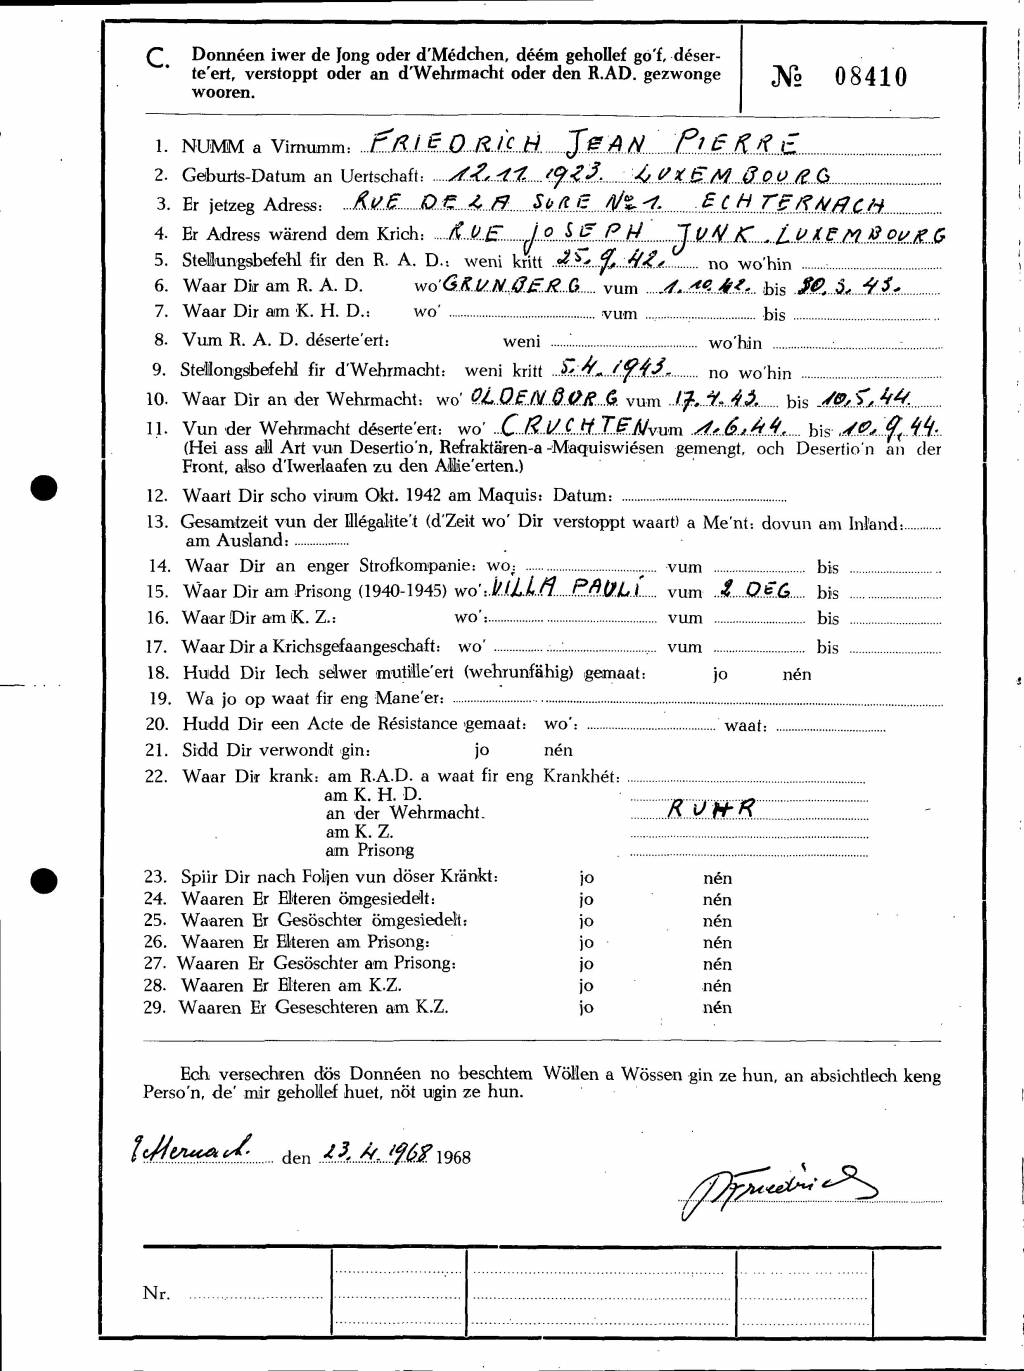 C. Donnéen iwer de Jong oder d'Médchen, déém gehollef go'f, déser-
te'ert, verstoppt oder an d'Wehrmacht oder den R.AD. gezwonge
wooren.
№ 08410
1. NUMM a Virnumm: FRIEDRICH JEAN PIERRE
2. Geburts-Datum an Uertschaft: 12.11.1923. LUXEMBOURG
3. Er jetzeg Adress: RUE DE LA SURE No 1. ECHTERNACH
4. Er Adress wärend dem Krich: RUE JOSEPH JUNK. LUXEMBOURG
5. Stellungsbefehl fir den R. A. D.: weni kritt 25.9.42. no wo'hin
6. Waar Dir am R. A. D. wo' GRUNBERG vum 1.10.42. bis 30.3.43.
7. Waar Dir am K. H. D.: wo' vum bis
8. Vum R. A. D. déserte'ert: weni wo'hin
9. Stellongsbefehl fir d'Wehrmacht: weni kritt 5.4.1943. no wo'hin
10. Waar Dir an der Wehrmacht: wo' OLDENBURG vum 17.4.43. bis 10.5.44.
11. Vun der Wehrmacht déserte'ert: wo' CRUCHTEN vum 1.6.44. bis 10.9.44.
(Hei ass all Art vun Desertio'n, Refraktären-a-Maquiswiésen gemengt, och Desertio'n an der
Front, also d'Iwerlaafen zu den Allie'erten.)
12. Waart Dir scho virum Okt. 1942 am Maquis: Datum:
13. Gesamtzeit vun der Illégalite't (d'Zeit wo' Dir verstoppt waart) a Me'nt: dovun am Inland:
am Ausland:
14. Waar Dir an enger Strofkompanie: wo: vum bis
15. Waar Dir am Prisong (1940-1945) wo': VILLA PAULI vum 2 DEG bis
16. Waar Dir am K. Z.: wo': vum bis
17. Waar Dir a Krichsgefaangeschaft: wo' vum bis
18. Hudd Dir Iech selwer mutille'ert (wehrunfähig) gemaat: jo nén
19. Wa jo op waat fir eng Mane'er:
20. Hudd Dir een Acte de Résistance gemaat: wo': waat:
21. Sidd Dir verwondt gin: jo nén
22. Waar Dir krank: am R.A.D. a waat fir eng Krankhét:
am K. H. D.
an der Wehrmacht. RUHR
am K. Z.
am Prisong
23. Spiir Dir nach Foljen vun döser Kränkt: jo nén
24. Waaren Er Elteren ömgesiedelt: jo nén
25. Waaren Er Gesöschter ömgesiedelt: jo nén
26. Waaren Er Elteren am Prisong: jo nén
27. Waaren Er Gesöschter am Prisong: jo nén
28. Waaren Er Elteren am K.Z. jo nén
29. Waaren Er Geseschteren am K.Z. jo nén
Ech versechren dös Donnéen no beschtem Wöllen a Wössen gin ze hun, an absichtlech keng
Perso'n, de' mir gehollef huet, nöt ugin ze hun.
Echternach. den 23.4.1968 1968
JPFriedrich
Nr.